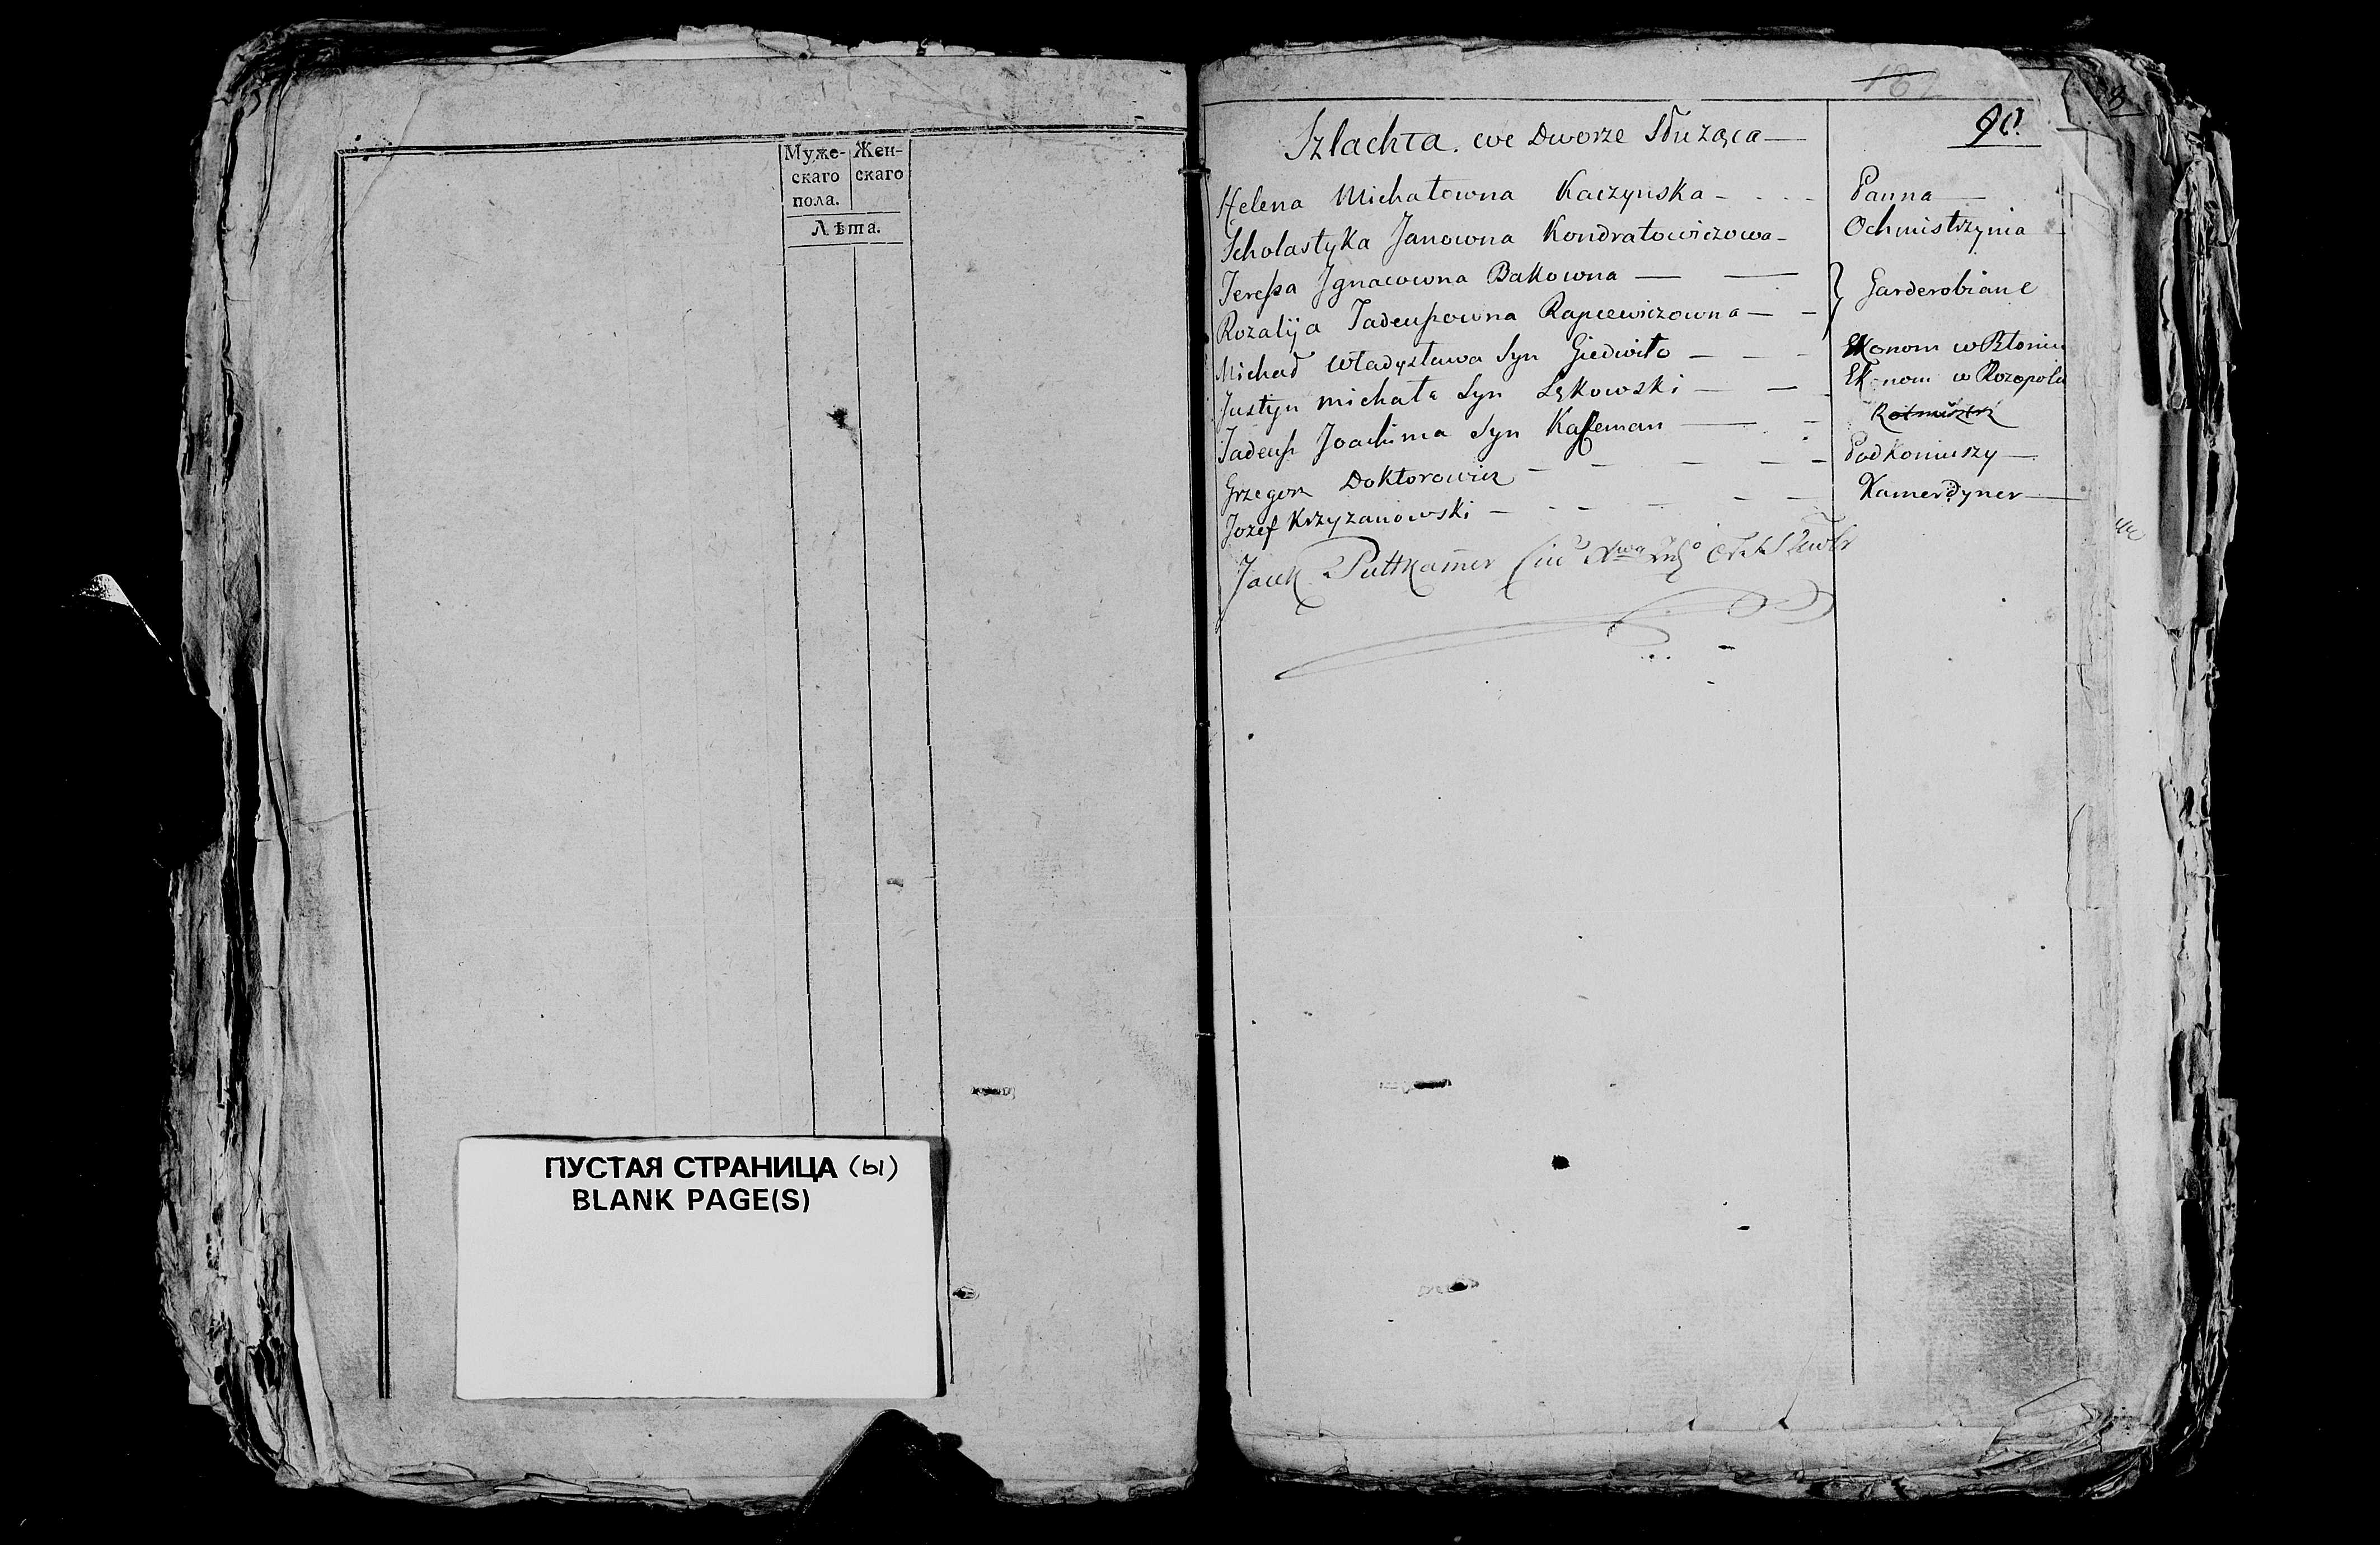 Муже- Жен-
скаго скаго
пола.
Лѣта.
ПУСТАЯ СТРАНИЦА (ы)
BLANK PAGE(S)
182
90.
Szlachta we Dworze Służąca —
Helena Michałowna Kaczynska - Panna —
Scholastyka Janowna Kondratowiczowa - Ochmistrzynia
Teressa Jgnacowna Bakowna — — } Garderobiane
Rozalija Tadeuszowna Rapcewiczowna — -
Michał Władysława Syn Giedwiło — — - Ekonom w Błoniu
Justyn Michała Syn Lękowski — — Ekonom w Rozopolu
Tadeusz Joachima Syn — - Rotmistrz
Grzegorz Doktorowicz - - — — — Podkoniuszy —
Jozef Krzyzanowski — - - - — Kamerdyner —
Jacek Puttkamer